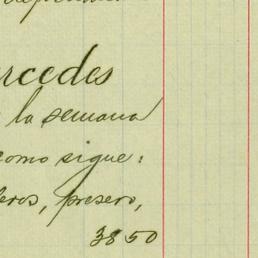 rcedes
la semana
como sigue:
eros, presero,
38 50